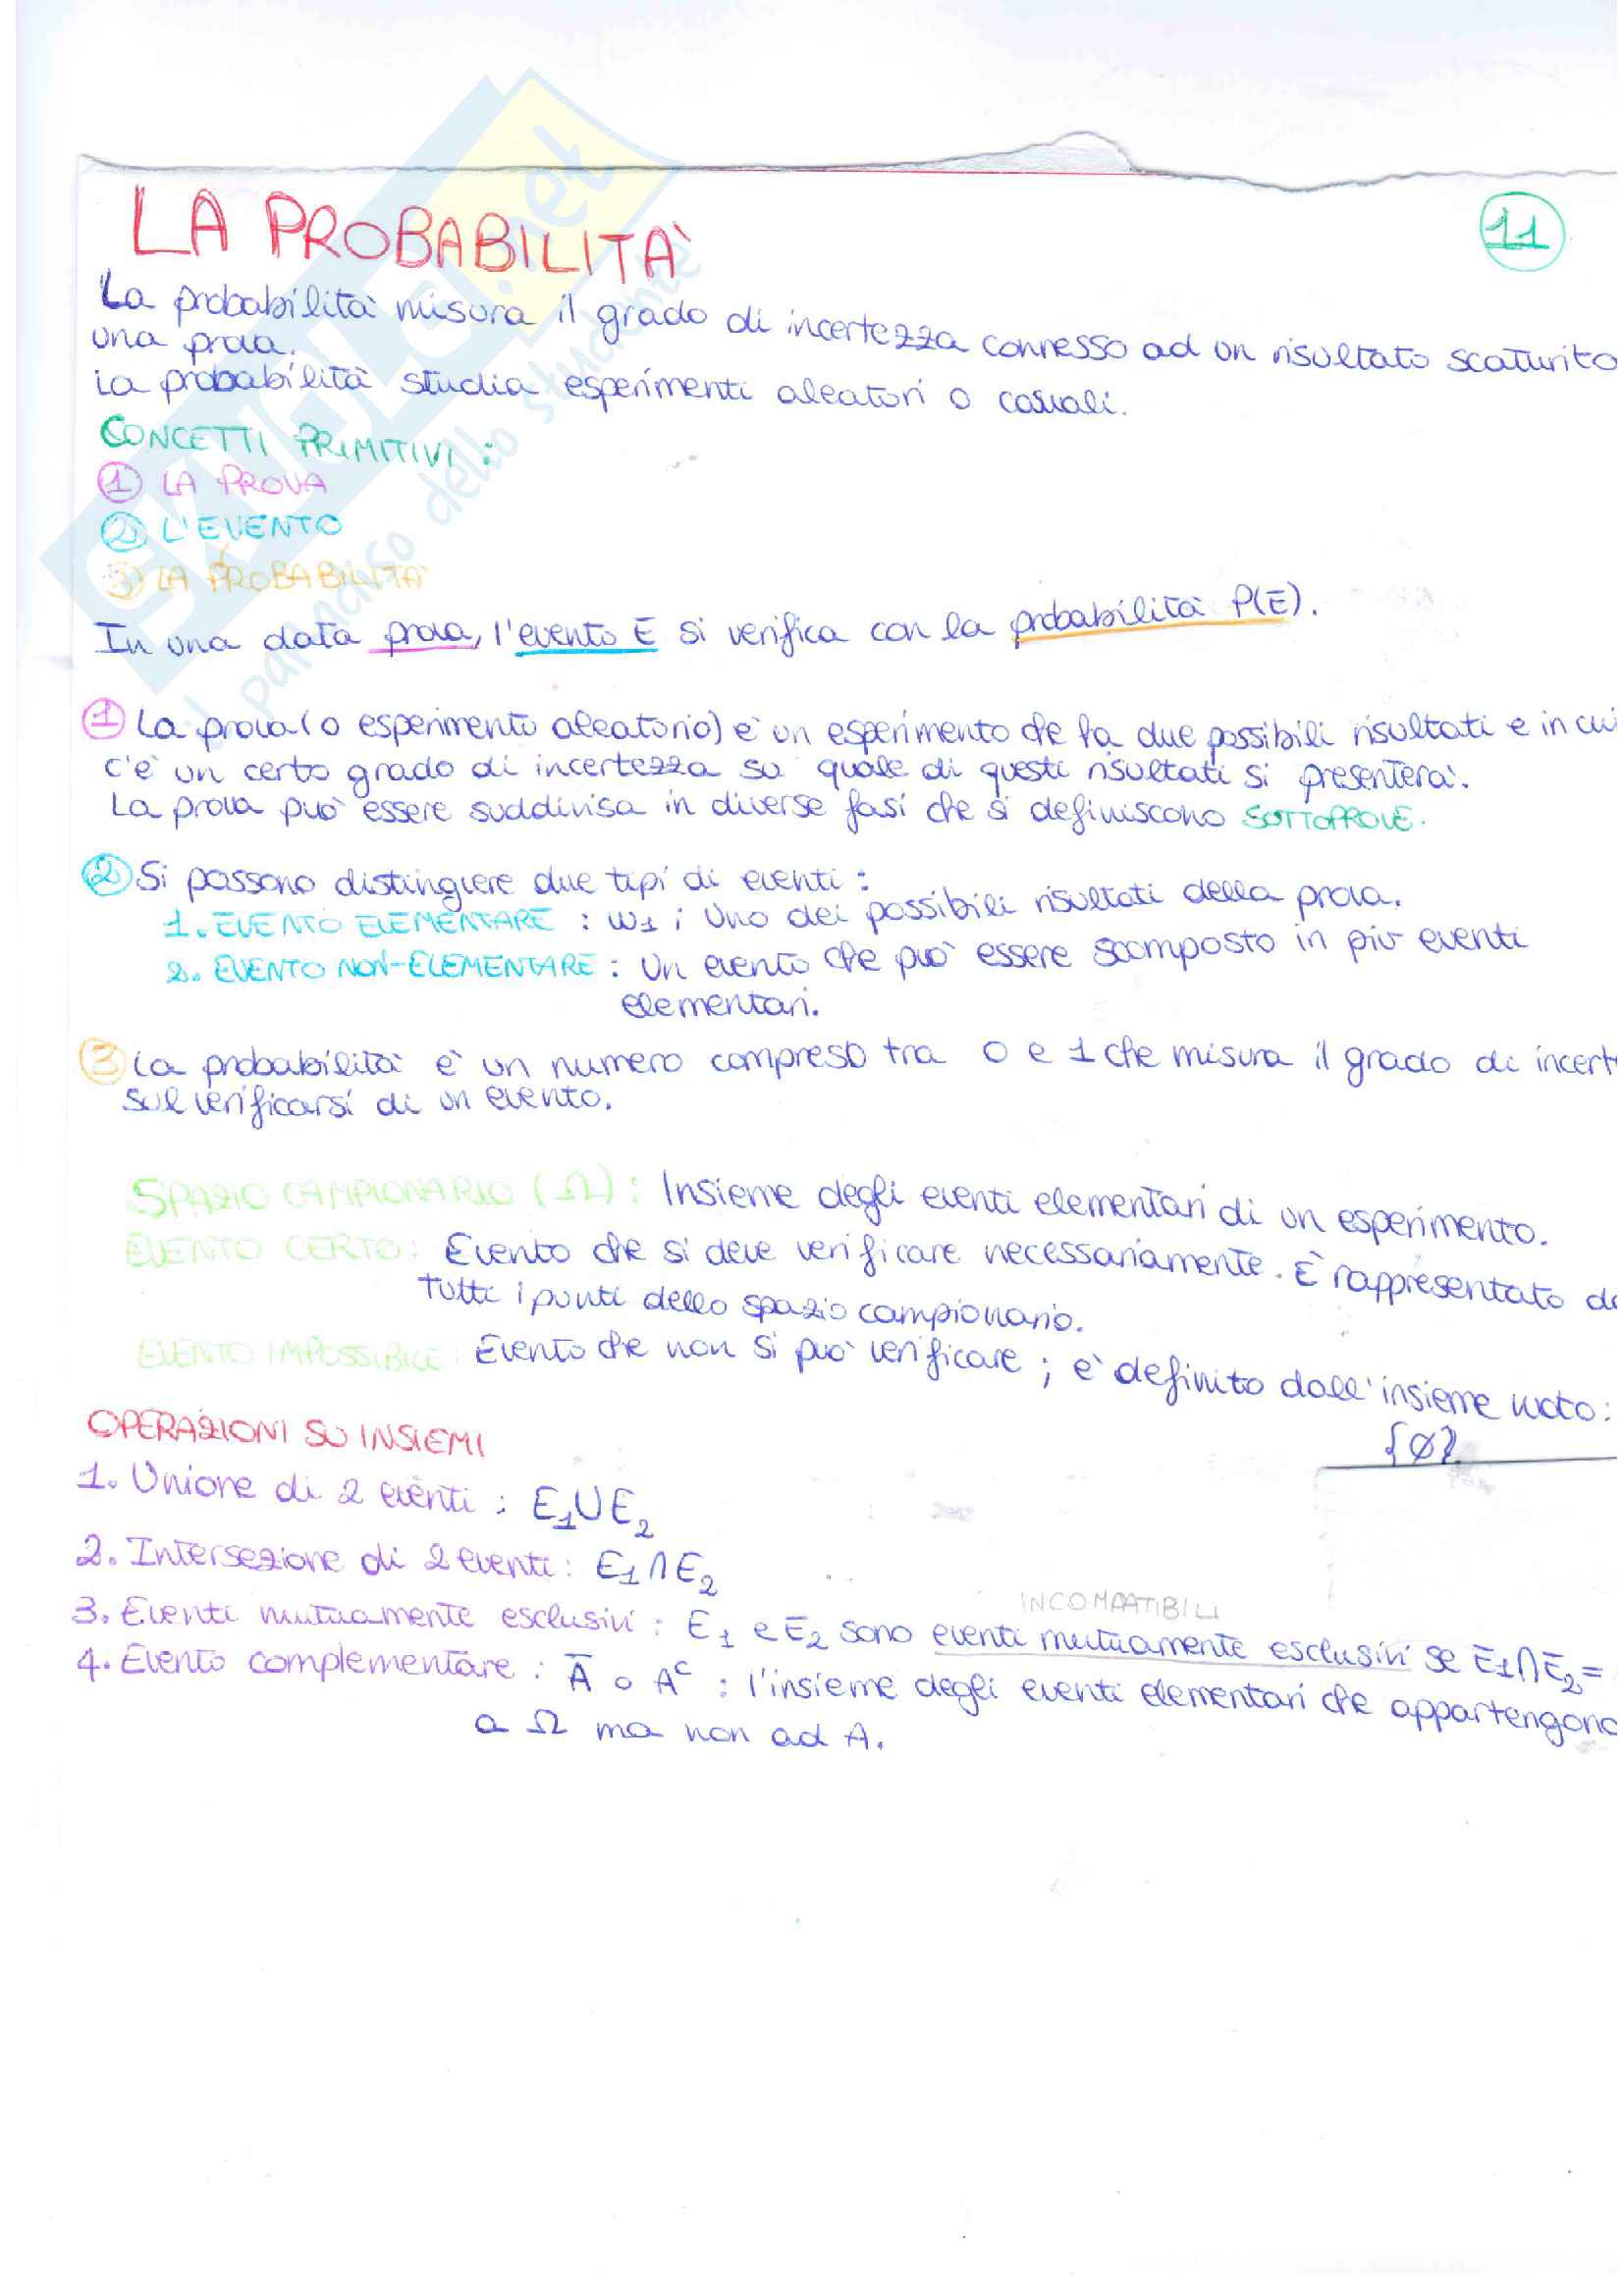 LA PROBABILITÀ
11
La probabilità misura il grado di incertezza connesso ad un risultato scaturito
una prova.
La probabilità studia esperimenti aleatori o casuali.
CONCETTI PRIMITIVI:
1 LA PROVA
2 L'EVENTO
3 LA PROBABILITÀ
In una data prova, l'evento E si verifica con la probabilità P(E).
1 La prova (o esperimento aleatorio) è un esperimento che ha due possibili risultati e in cui
c'è un certo grado di incertezza su quale di questi risultati si presenterà.
La prova può essere suddivisa in diverse fasi che si definiscono SOTTOPROVE.
2 Si possono distinguere due tipi di eventi:
1. EVENTO ELEMENTARE: ω1; Uno dei possibili risultati della prova.
2. EVENTO NON-ELEMENTARE: Un evento che può essere scomposto in più eventi
elementari.
3 La probabilità è un numero compreso tra 0 e 1 che misura il grado di incert
sul verificarsi di un evento.
SPAZIO CAMPIONARIO (Ω): Insieme degli eventi elementari di un esperimento.
EVENTO CERTO: Evento che si deve verificare necessariamente. È rappresentato da
tutti i punti dello spazio campionario.
EVENTO IMPOSSIBILE: Evento che non si può verificare; è definito dall'insieme vuoto:
{∅}
OPERAZIONI SU INSIEMI
1. Unione di 2 eventi: E1∪E2
2. Intersezione di 2 eventi: E1∩E2
INCOMPATIBILI
3. Eventi mutuamente esclusivi: E1 e E2 sono eventi mutuamente esclusivi se E1∩E2=
4. Evento complementare: Ā o Aᶜ: l'insieme degli eventi elementari che appartengono
a Ω ma non ad A.
SKUOLA.net
il paradiso dello studente